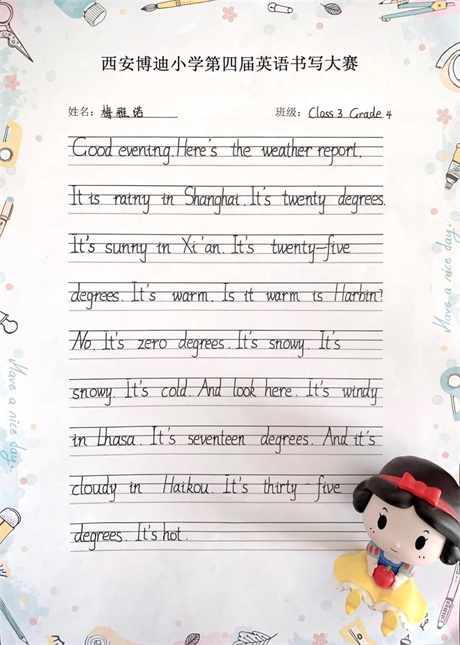 西安博迪小学第四届英语书写大赛
姓名：梅雅诺 班级：Class 3 Grade 4
Good evening. Here's the weather report.
It is rainy in Shanghai. It's twenty degrees.
It's sunny in Xi'an. It's twenty-five
degrees. It's warm. Is it warm is Harbin?
No. It's zero degrees. It's snowy. It's
snowy. It's cold. And look here. It's windy
in Lhasa. It's seventeen degrees. And it's
cloudy in Haikou. It's thirty-five
degrees. It's hot.
Have a nice day.
Have a nice day.